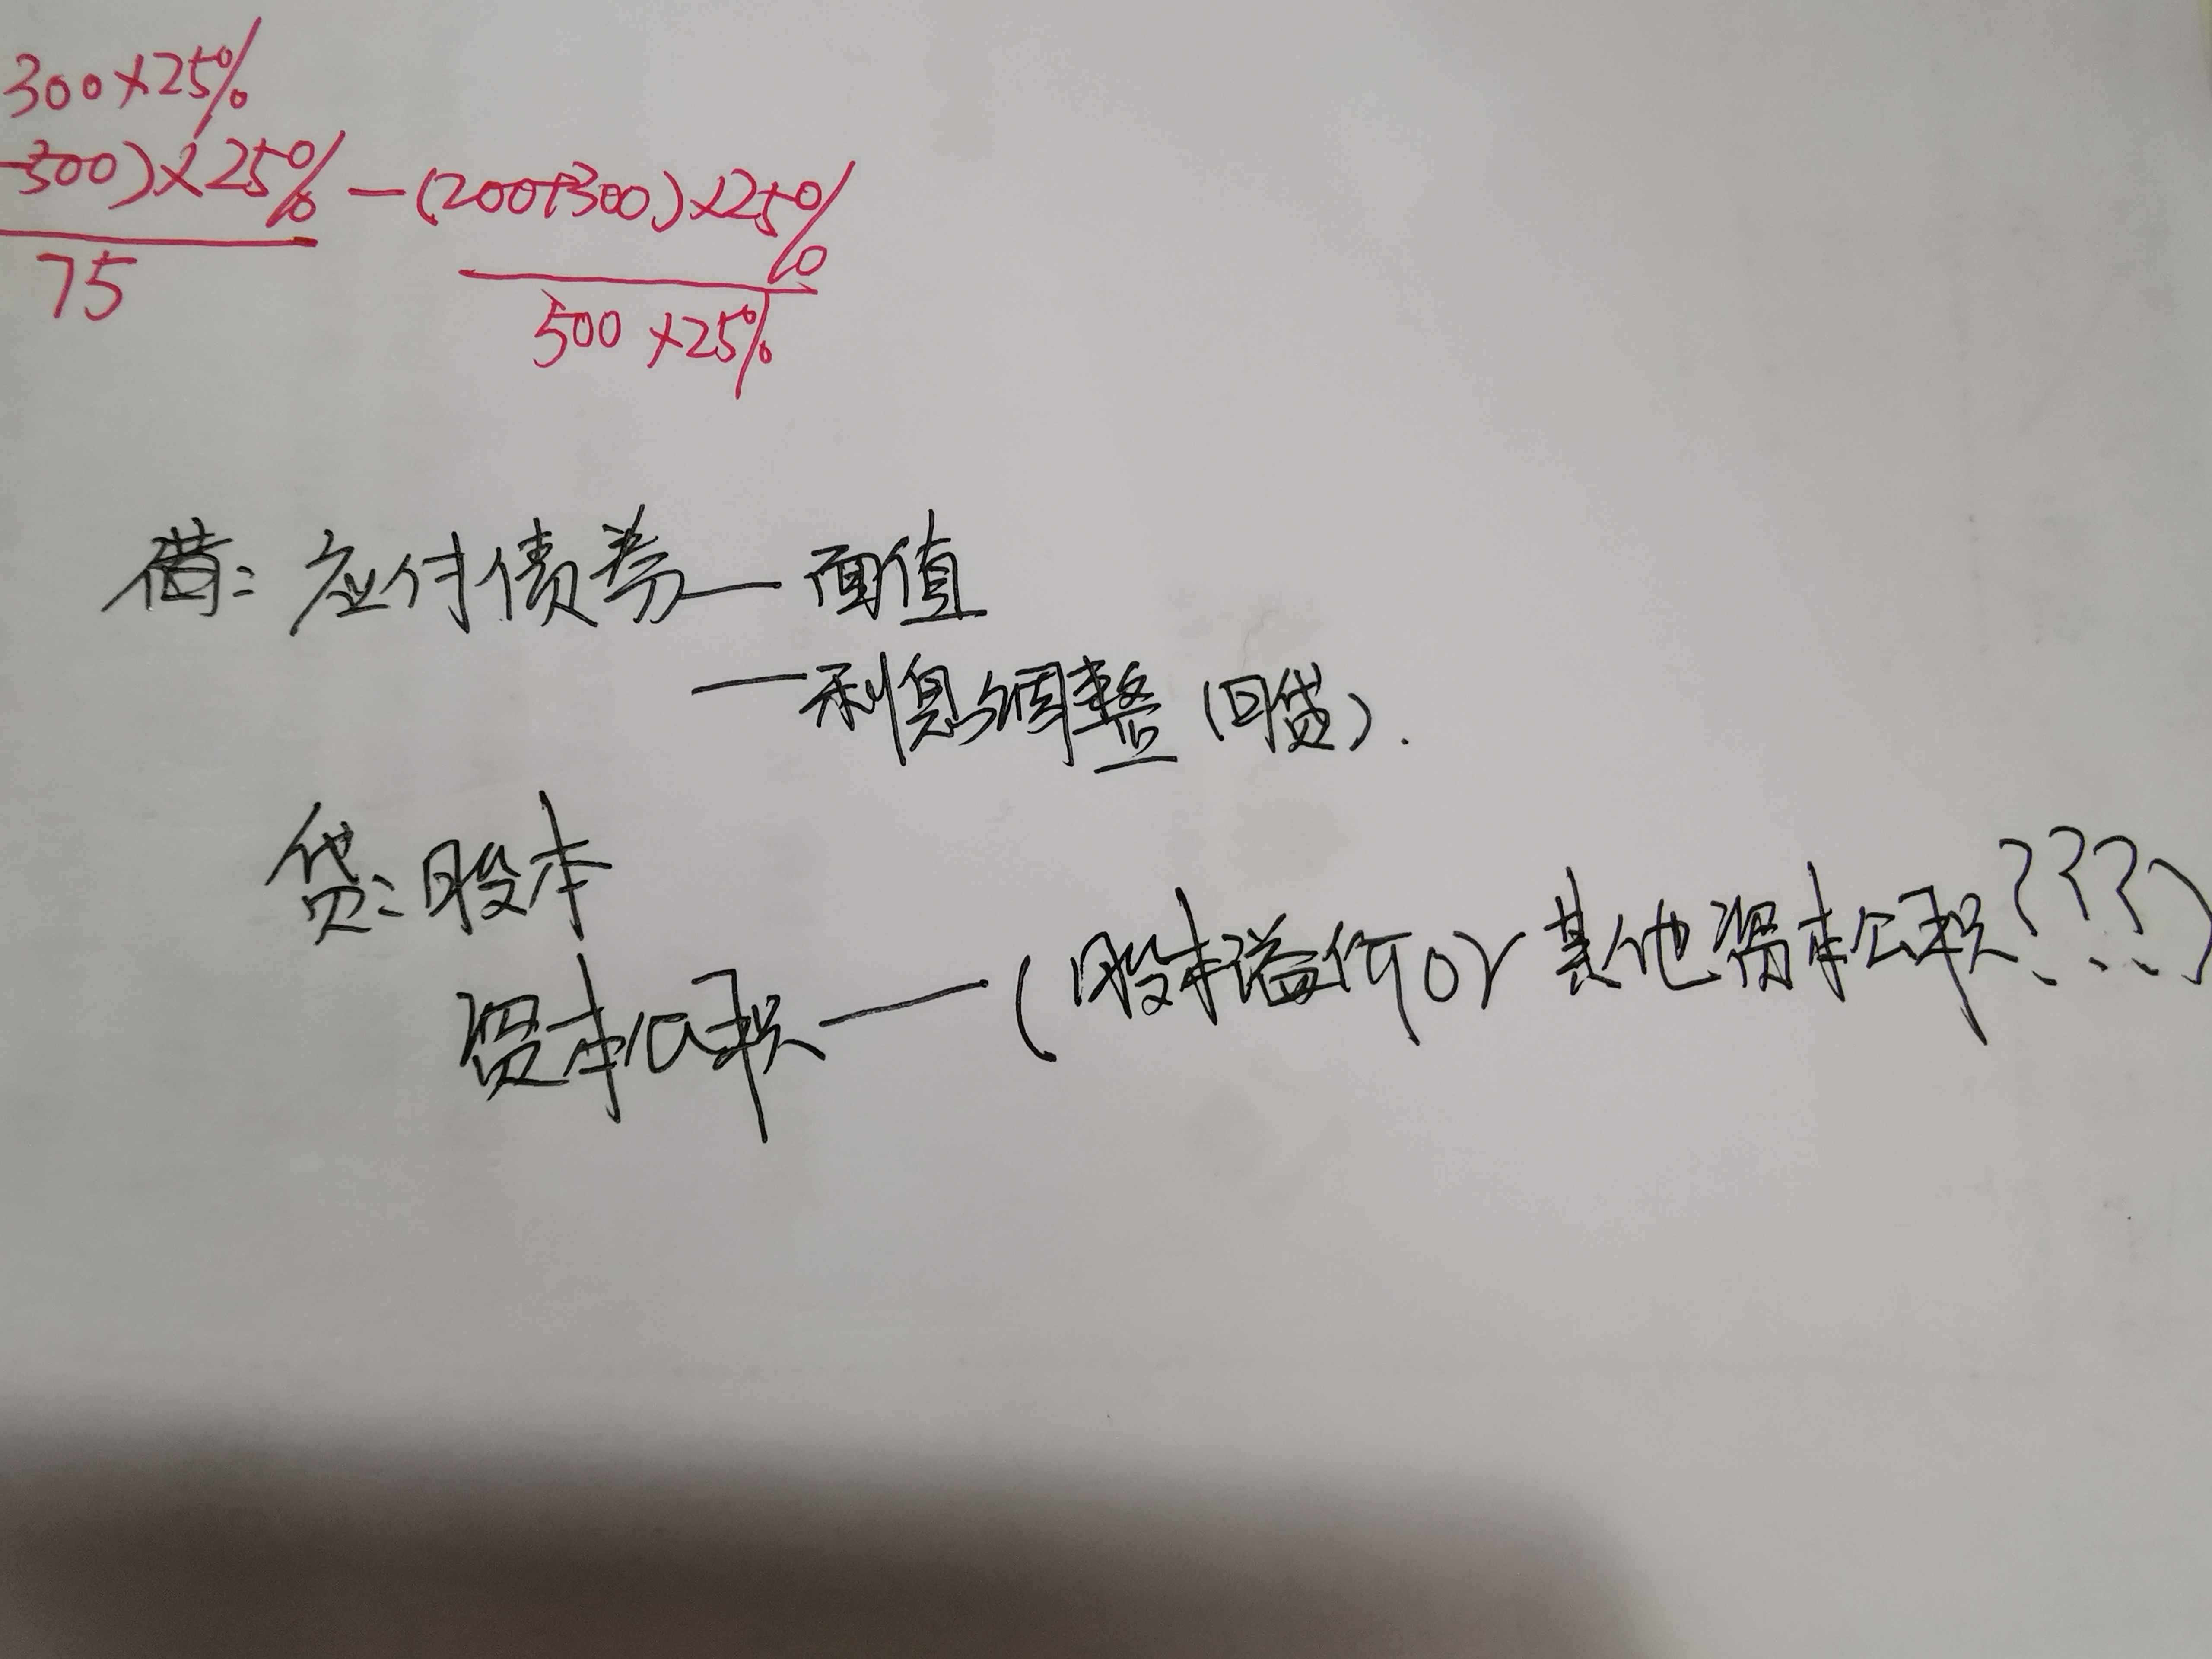 300×25%
-300)×25% -(200+300)×25%
75
500×25%
借:应付债券—面值
—利息调整(可贷).
贷:股本
资本公积—(股本溢价or其他资本公积???)